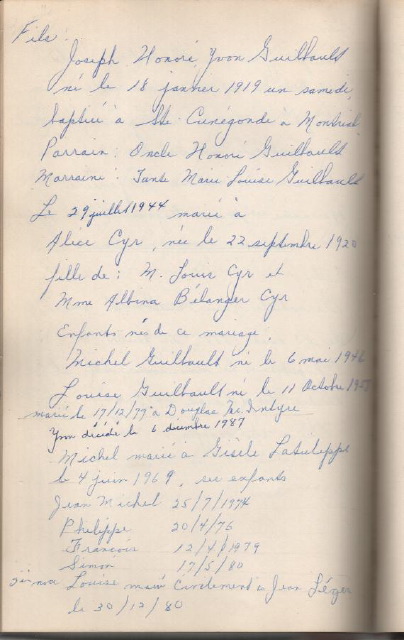 Fils
Joseph Honoré Yvon Guilbault
né le 18 janvier 1919 un samedi,
baptisé à Ste-Cunégonde à Montréal
Parrain: Oncle Honoré Guilbault
Marraine: Tante Marie Louise Guilbault
Le 29 juillet 1944 marié à
Alice Cyr, née le 22 septembre 1920
fille de: M. Louis Cyr et
Mme Albina Bélanger Cyr
Enfants nés de ce mariage.
Michel Guilbault né le 6 mai 1946
Louise Guilbault né le 11 Octobre
marié le 17/12/77 à Douglas Mc Intyre
Yvon décédé le 6 décembre 1987
Michel marié à Gisèle
le 4 juin 1969, ses enfants
Jean Michel 25/7/1974
Philippe 20/4/76
Francois 12/4/1979
Simon 17/5/80
Louise marié Civilement à Jean Léger
le 30/12/80